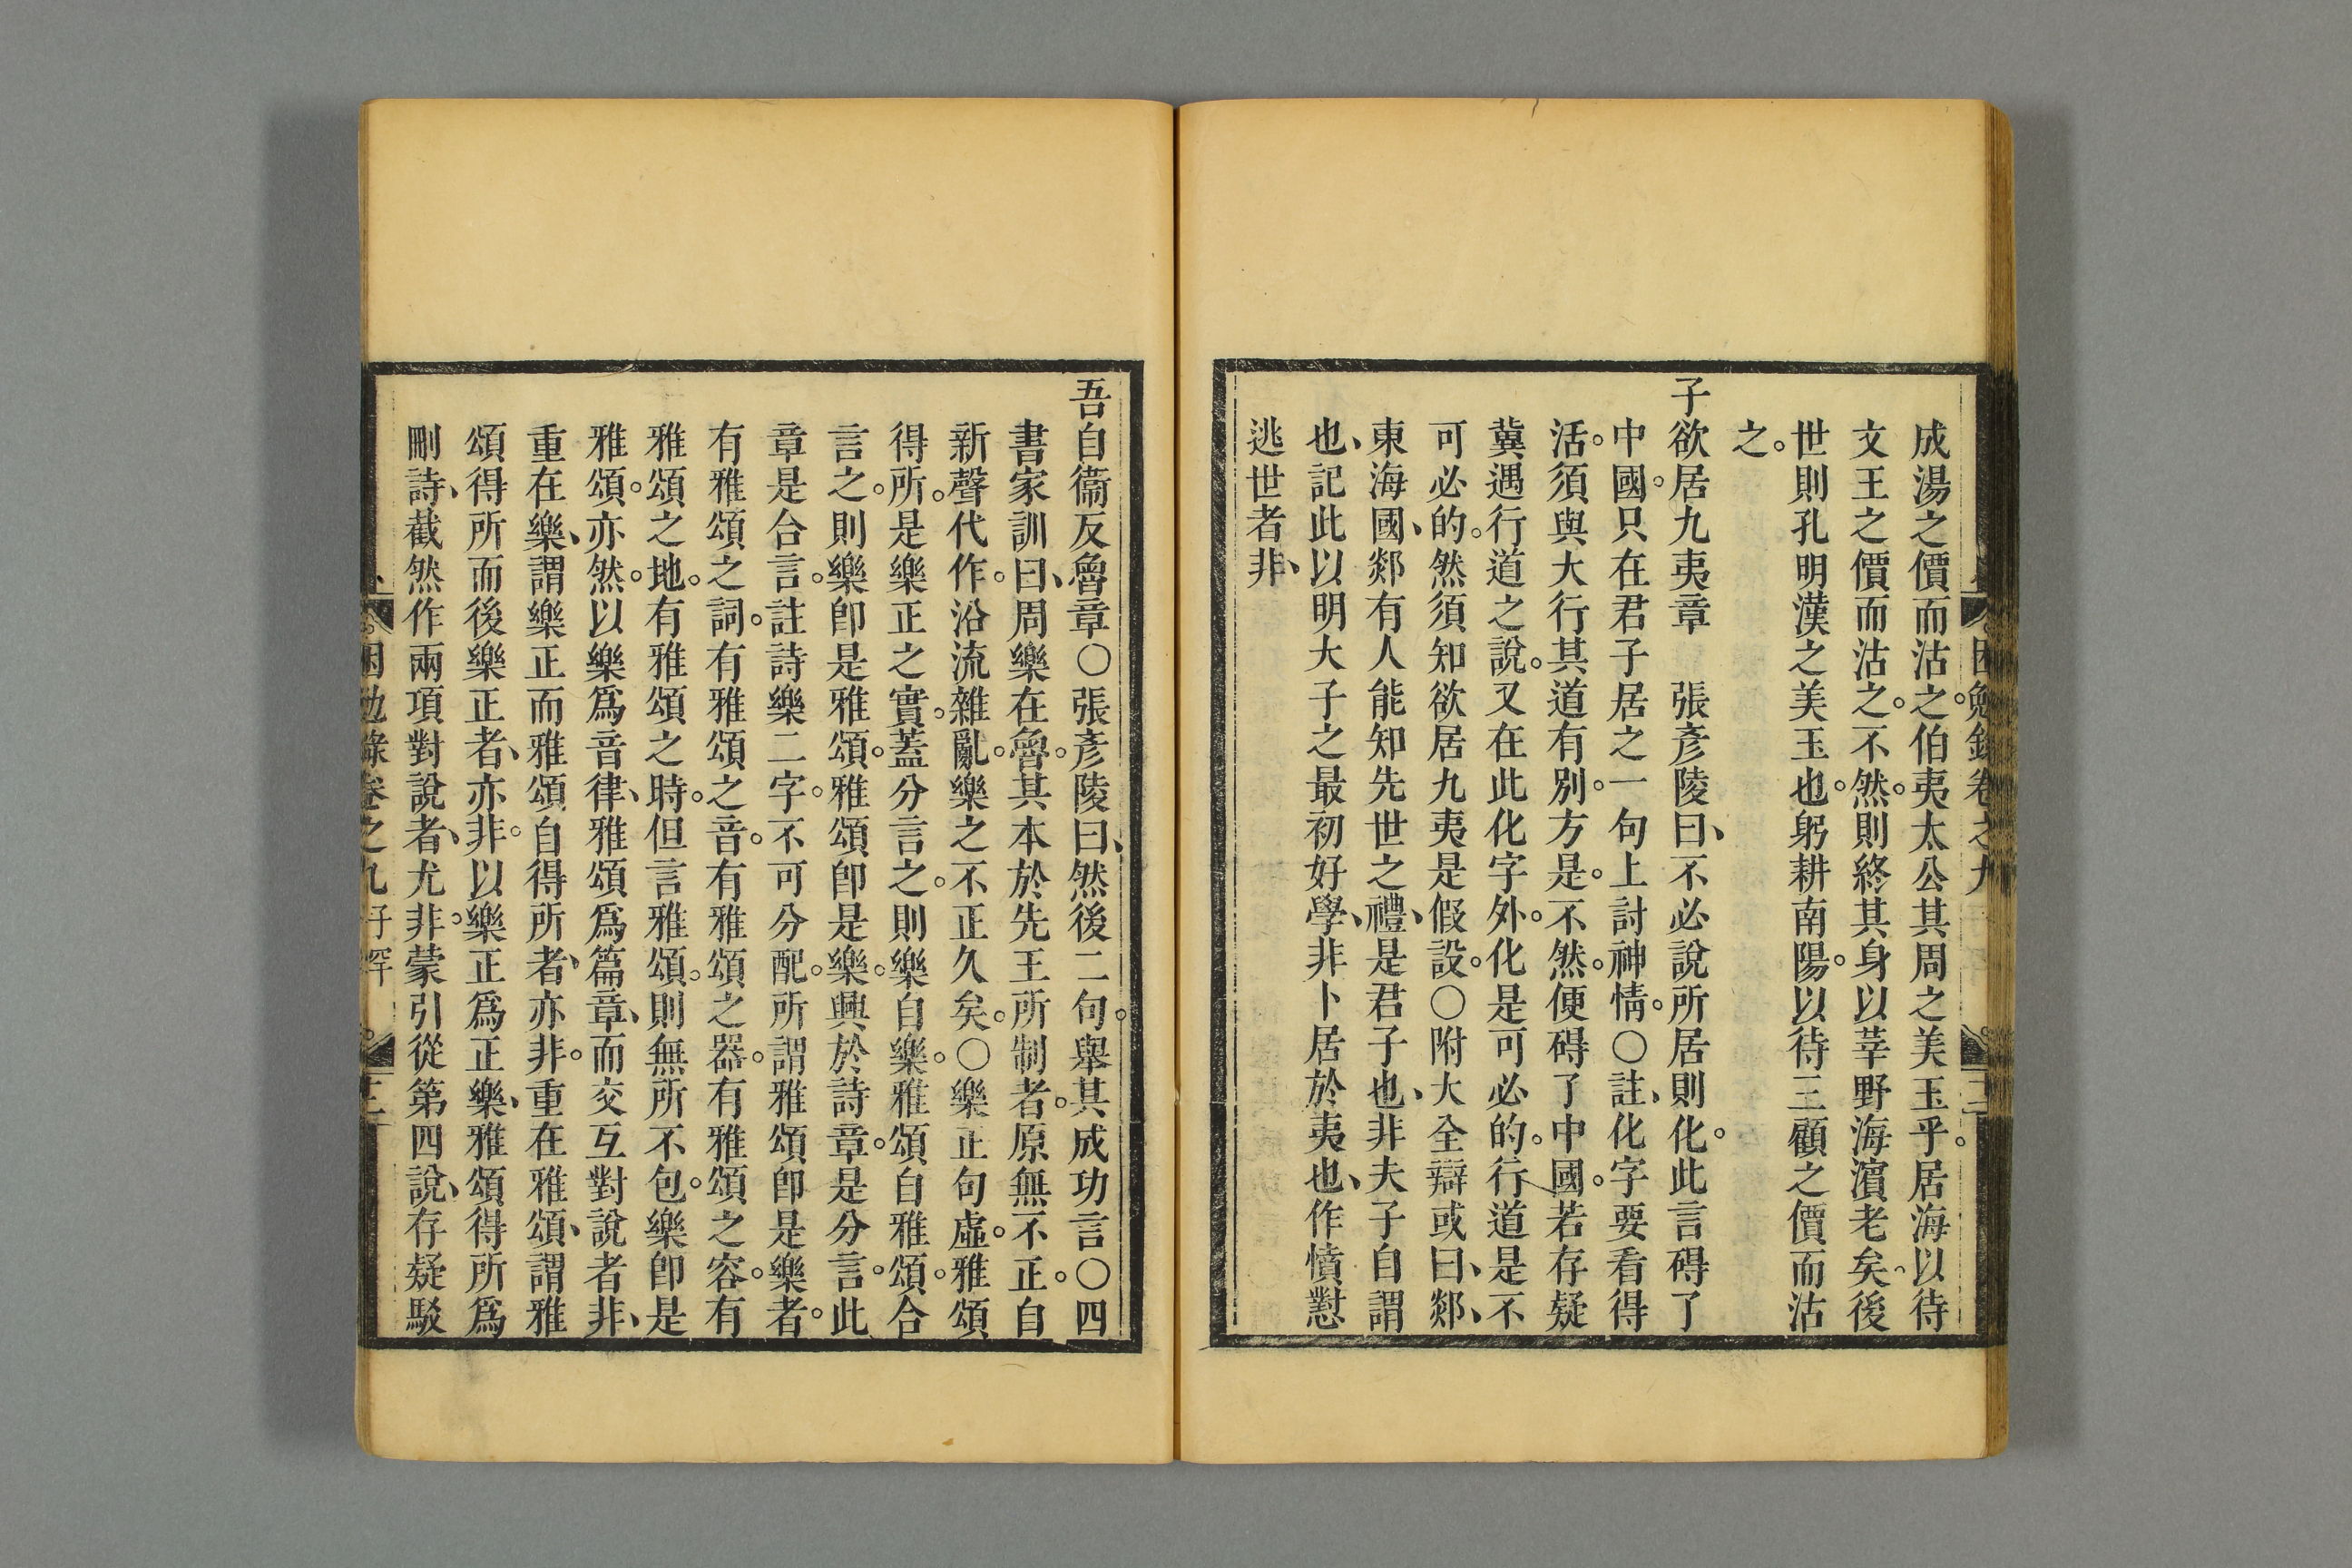 成湯之價而沽之。伯夷太公其周之美玉乎。居海以待
文王之價而沽之。不然。則終其身以莘野海濵老矣。後
世則孔明漢之美玉也。躬耕南陽。以待三顧之價而沽
之。
子欲居九夷章　張彥陵曰、不必說所居則化。此言碍了
中國。只在君子居之一句上討神情。〇註、化字要看得
活。須與大行其道有別。方是。不然。便碍了中國。若存疑
冀遇行道之說。又在此化字外。化是可必的。行道是不
可必的。然須知欲居九夷是假設。〇附大全辯或曰、郯、
東海國、郯有人能知先世之禮、是君子也、非夫子自謂
也、記此以明大子之最初好學、非卜居於夷也、作憤懟
逃世者非、
吾自衞反魯章〇張彥陵曰、然後二句。舉其成功言〇四
書家訓曰、周樂在魯。其本於先王所制者。原無不正。自
新聲代作。沿流雜亂。樂之不正久矣。〇樂正句虛。雅頌
得所。是樂正之實。蓋分言之。則樂自樂。雅頌自雅頌。合
言之。則樂卽是雅頌。雅頌卽是樂。樂興於詩章。是分言。此
章是合言。註詩樂二字。不可分配。所謂雅頌卽是樂者。
有雅頌之詞。有雅頌之音。有雅頌之器。有雅頌之容。有
雅頌之地。有雅頌之時。但言雅頌。則無所不包。樂卽是
雅頌。亦然。以樂爲音律、雅頌爲篇章、而交互對說者非、
重在樂、謂樂正而雅頌自得所者、亦非。重在雅頌、謂雅
頌得所而後樂正者、亦非。以樂正爲正樂、雅頌得所爲
刪詩、截然作兩項對說者、尤非。蒙引從第四說、存疑駁
困勉錄卷之九